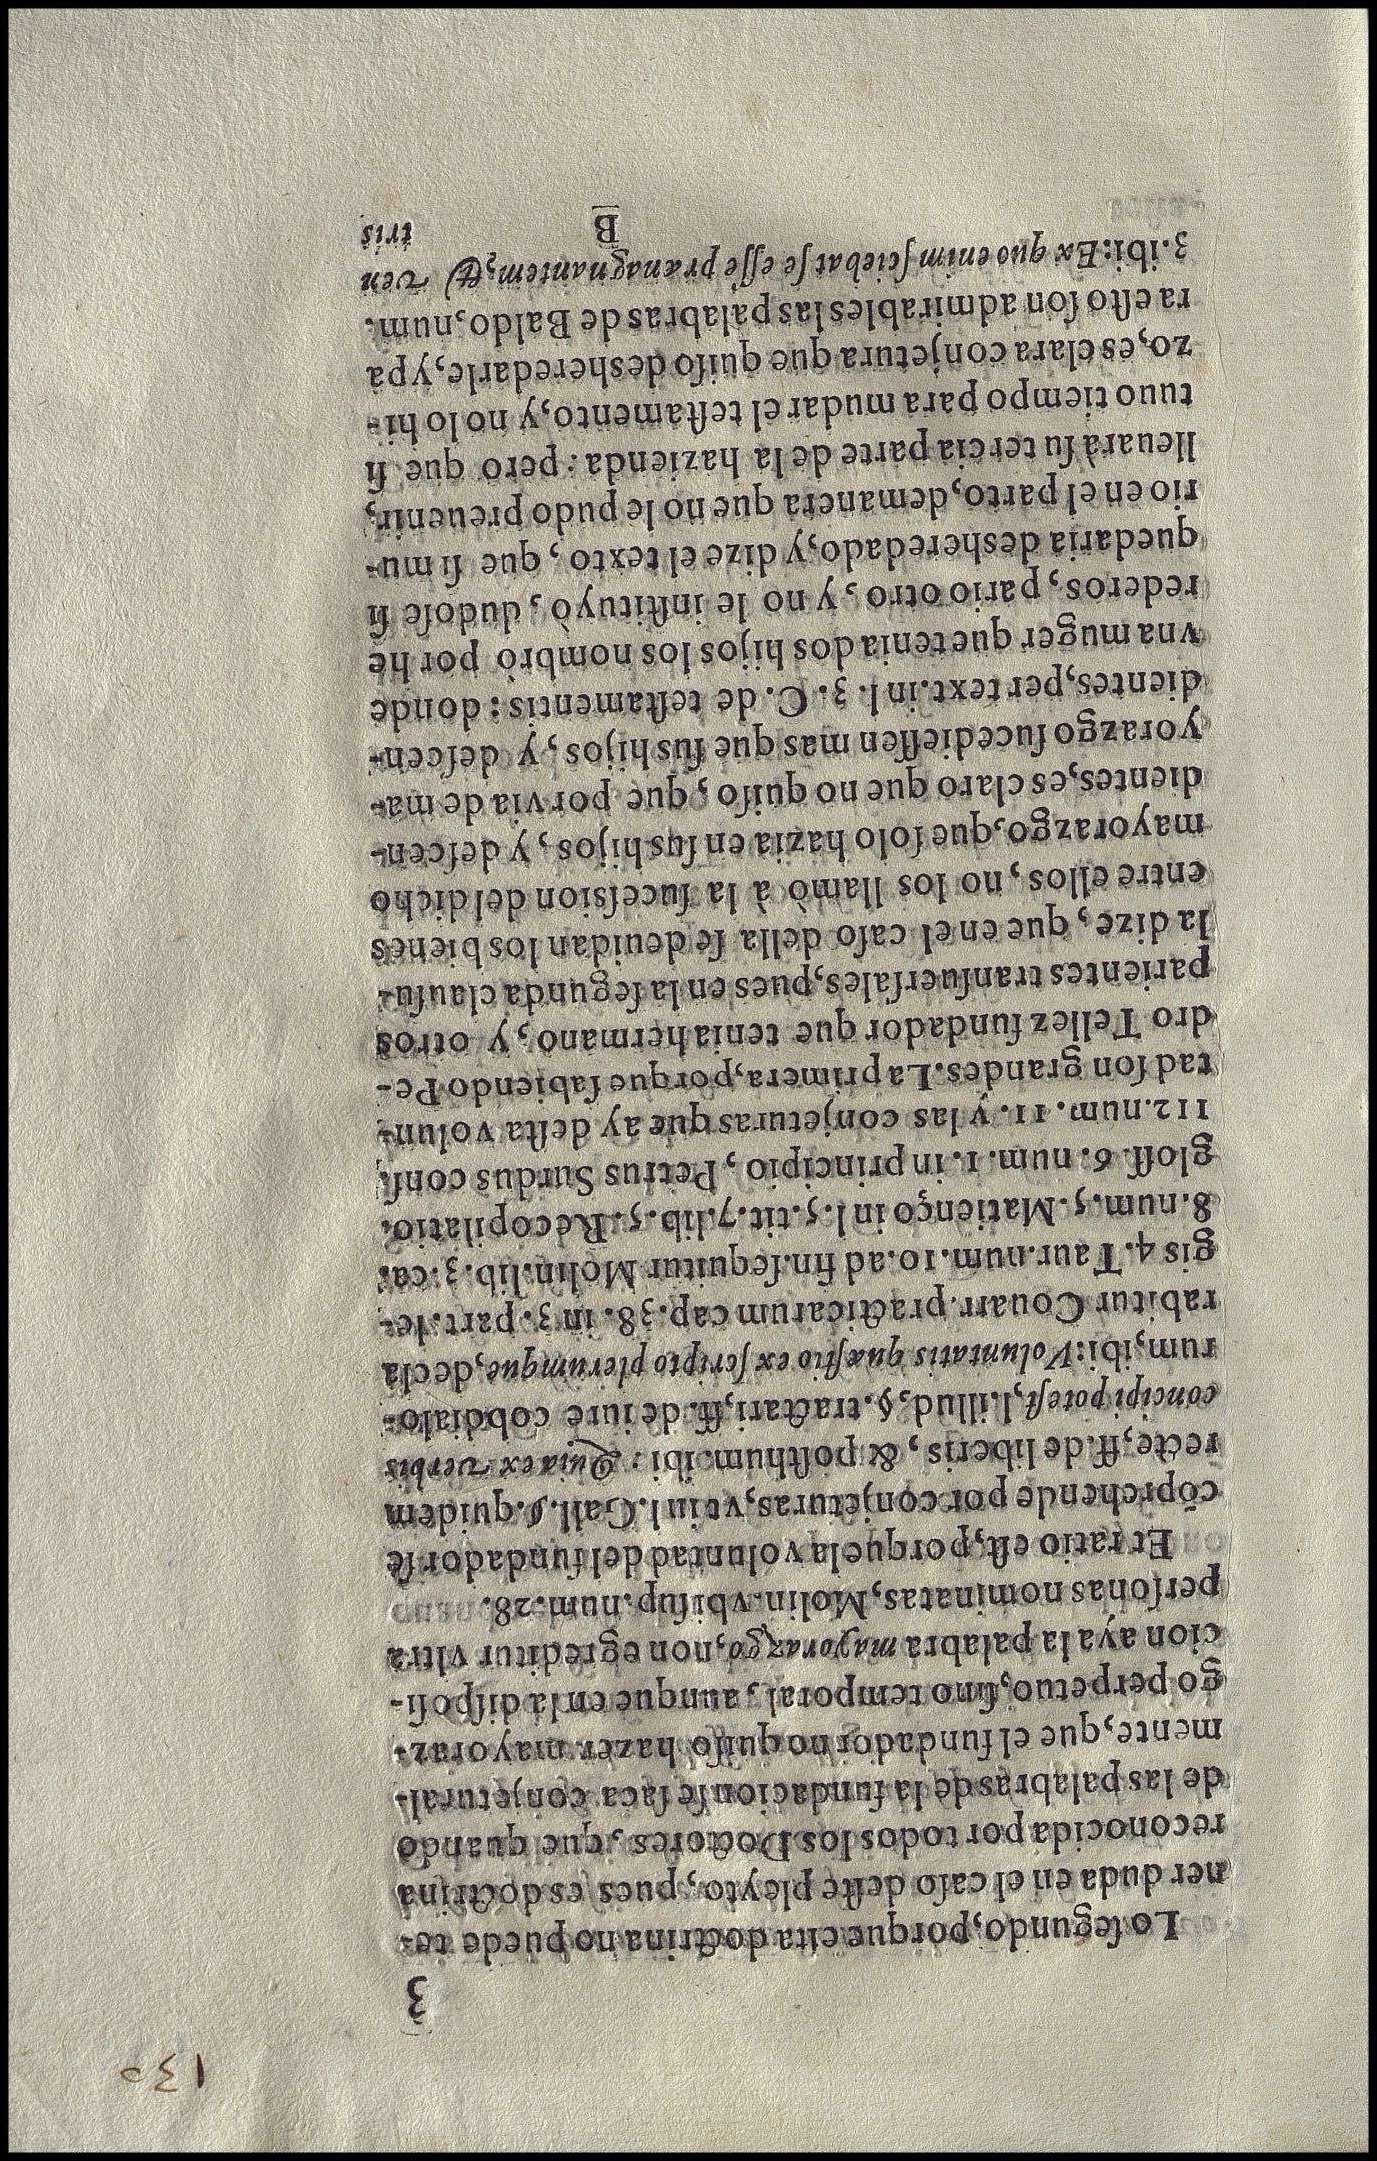 130
3
Lo ſegundo, porque eſta doctrina no puede te-
ner duda en el caſo deſte pleyto, pues es doctrina
reconocida por todos los Doctores, que quando
de las palabras de la fundacion ſe ſaca conjetural-
mente, que el fundador no quiſo hazer mayoraz-
go perpetuo, ſino temporal, aunque en la diſpoſi-
cion aya la palabra mayorazgo, non egreditur vltra
perſonas nominatas, Molin. vbi ſup. num. 28.
Et ratio eſt, porque la voluntad del fundador ſe
cõprehende por conjeturas, vt in l. Gall. §. quidem
recte, ff. de liberis, & poſthum. ibi: Quia ex verbis
concipi poteſt, l. illud, §. tractari, ff. de iure codicilo-
rum, ibi: Voluntatis quæſtio ex ſcripto plerumque, decla
rabitur Couarr. practicarum cap. 38. in 3. part. le-
gis 4. Taur. num. 10. ad fin. ſequitur Molin. lib. 3. ca.
8. num. 5. Matienço in l. 5. tit. 7. lib. 5. Recopilatio.
gloſſ. 6. num. 1. in principio, Petrus Surdus conſ.
112. num. 11. y las conjeturas que ay deſta volun-
tad ſon grandes. La primera, porque ſabiendo Pe-
dro Tellez fundador que tenia hermano, y otros
parientes tranſuerſales, pues en la ſegunda clauſu-
la dize, que en el caſo della ſe deuidan los bienes
entre ellos, no los llamò à la ſuceſsion del dicho
mayorazgo, que ſolo hazia en ſus hijos, y deſcen-
dientes, es claro que no quiſo, que por via de ma-
yorazgo ſucedieſſen mas que ſus hijos, y deſcen-
dientes, per text. in l. 3. C. de teſtamentis: donde
vna muger que tenia dos hijos los nombrò por he
rederos, pario otro, y no le inſtituyò, dudoſe ſi
quedaria desheredado, y dize el texto, que ſi mu-
rio en el parto, de manera que no le pudo preuenir,
lleuarà ſu tercia parte de la hazienda: pero que ſi
tuuo tiempo para mudar el teſtamento, y no lo hi-
zo, es clara conjetura que quiſo desheredarle, y pa
ra eſto ſon admirables las palabras de Baldo, num.
3. ibi: Ex quo enim ſciebat ſe eſſe prænagnantem, & ven
B tris